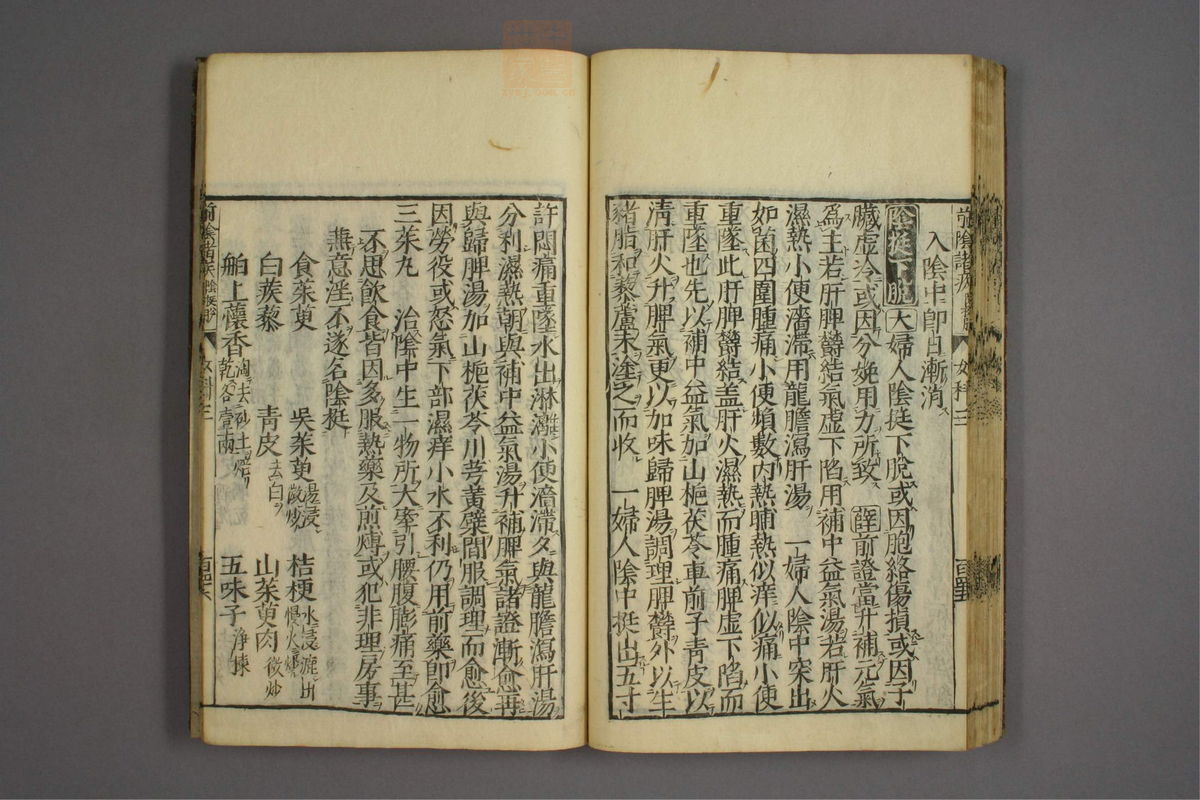 入陰中即日漸消
陰挺下脫 大 婦人陰挺下脫或因胞絡傷損或因子
臟虛冷或因分娩用力所致 薛 前證當升補元氣
爲主若肝脾鬱結氣虛下陷用補中益氣湯若肝火
濕熱小便濇滯用龍膽瀉肝湯 一婦人陰中突出
如菌四圍腫痛小便頻數內熱晡熱似痒似痛小便
重墜此肝脾鬱結盖肝火濕熱而腫痛脾虛下陷而
重墜也先以補中益氣加山梔茯苓車前子青皮以
清肝火升脾氣更以加味歸脾湯調理脾鬱外以生
猪脂和藜蘆末塗之而收 一婦人陰中挺出五寸
許悶痛重墜水出淋漓小便濇滯夕與龍膽瀉肝湯
分利濕熱朝與補中益氣湯升補脾氣諸證漸愈再
與歸脾湯加山梔茯苓川芎黃蘗間服調理而愈後
因勞役或怒氣下部濕痒小水不利仍用前藥即愈
三茱丸 治陰中生一物所大牽引腰腹膨痛至甚
不思飲食皆因多服熱藥及煎煿或犯非理房事
兼意淫不遂名陰挺
食茱萸 吳茱萸湯浸微炒 桔梗水浸漉出慢火炒
白蒺藜 青皮去白 山茱萸肉微炒
舶上蘹香淘去砂土焙乾各壹兩 五味子淨揀